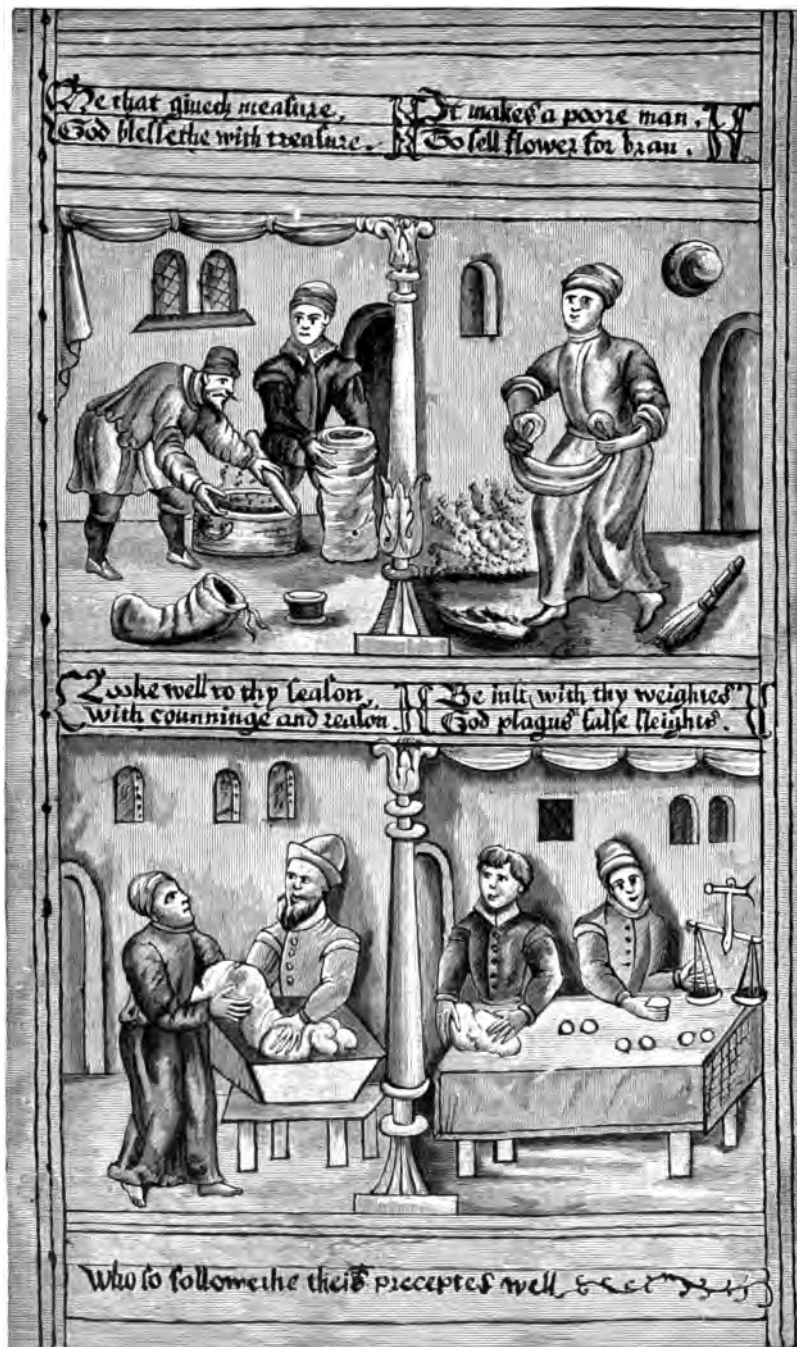 He that giveth measure,
God blessethe with treasure.
It makes a poore man.
To sell flower for bran.
Looke well to thy season,
with counninge and reason.
Be just, with thy weightes
God plagus false sleightes.
Who so followethe theis preceptes well